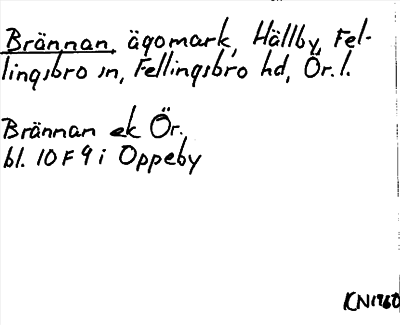 Brännan, ägomark, Hällby, Fel-
lingsbro sn, Fellingsbro hd, Ör. l.
Brännan ek Ör.
bl. 10 F 9 i Oppeby
KN1960